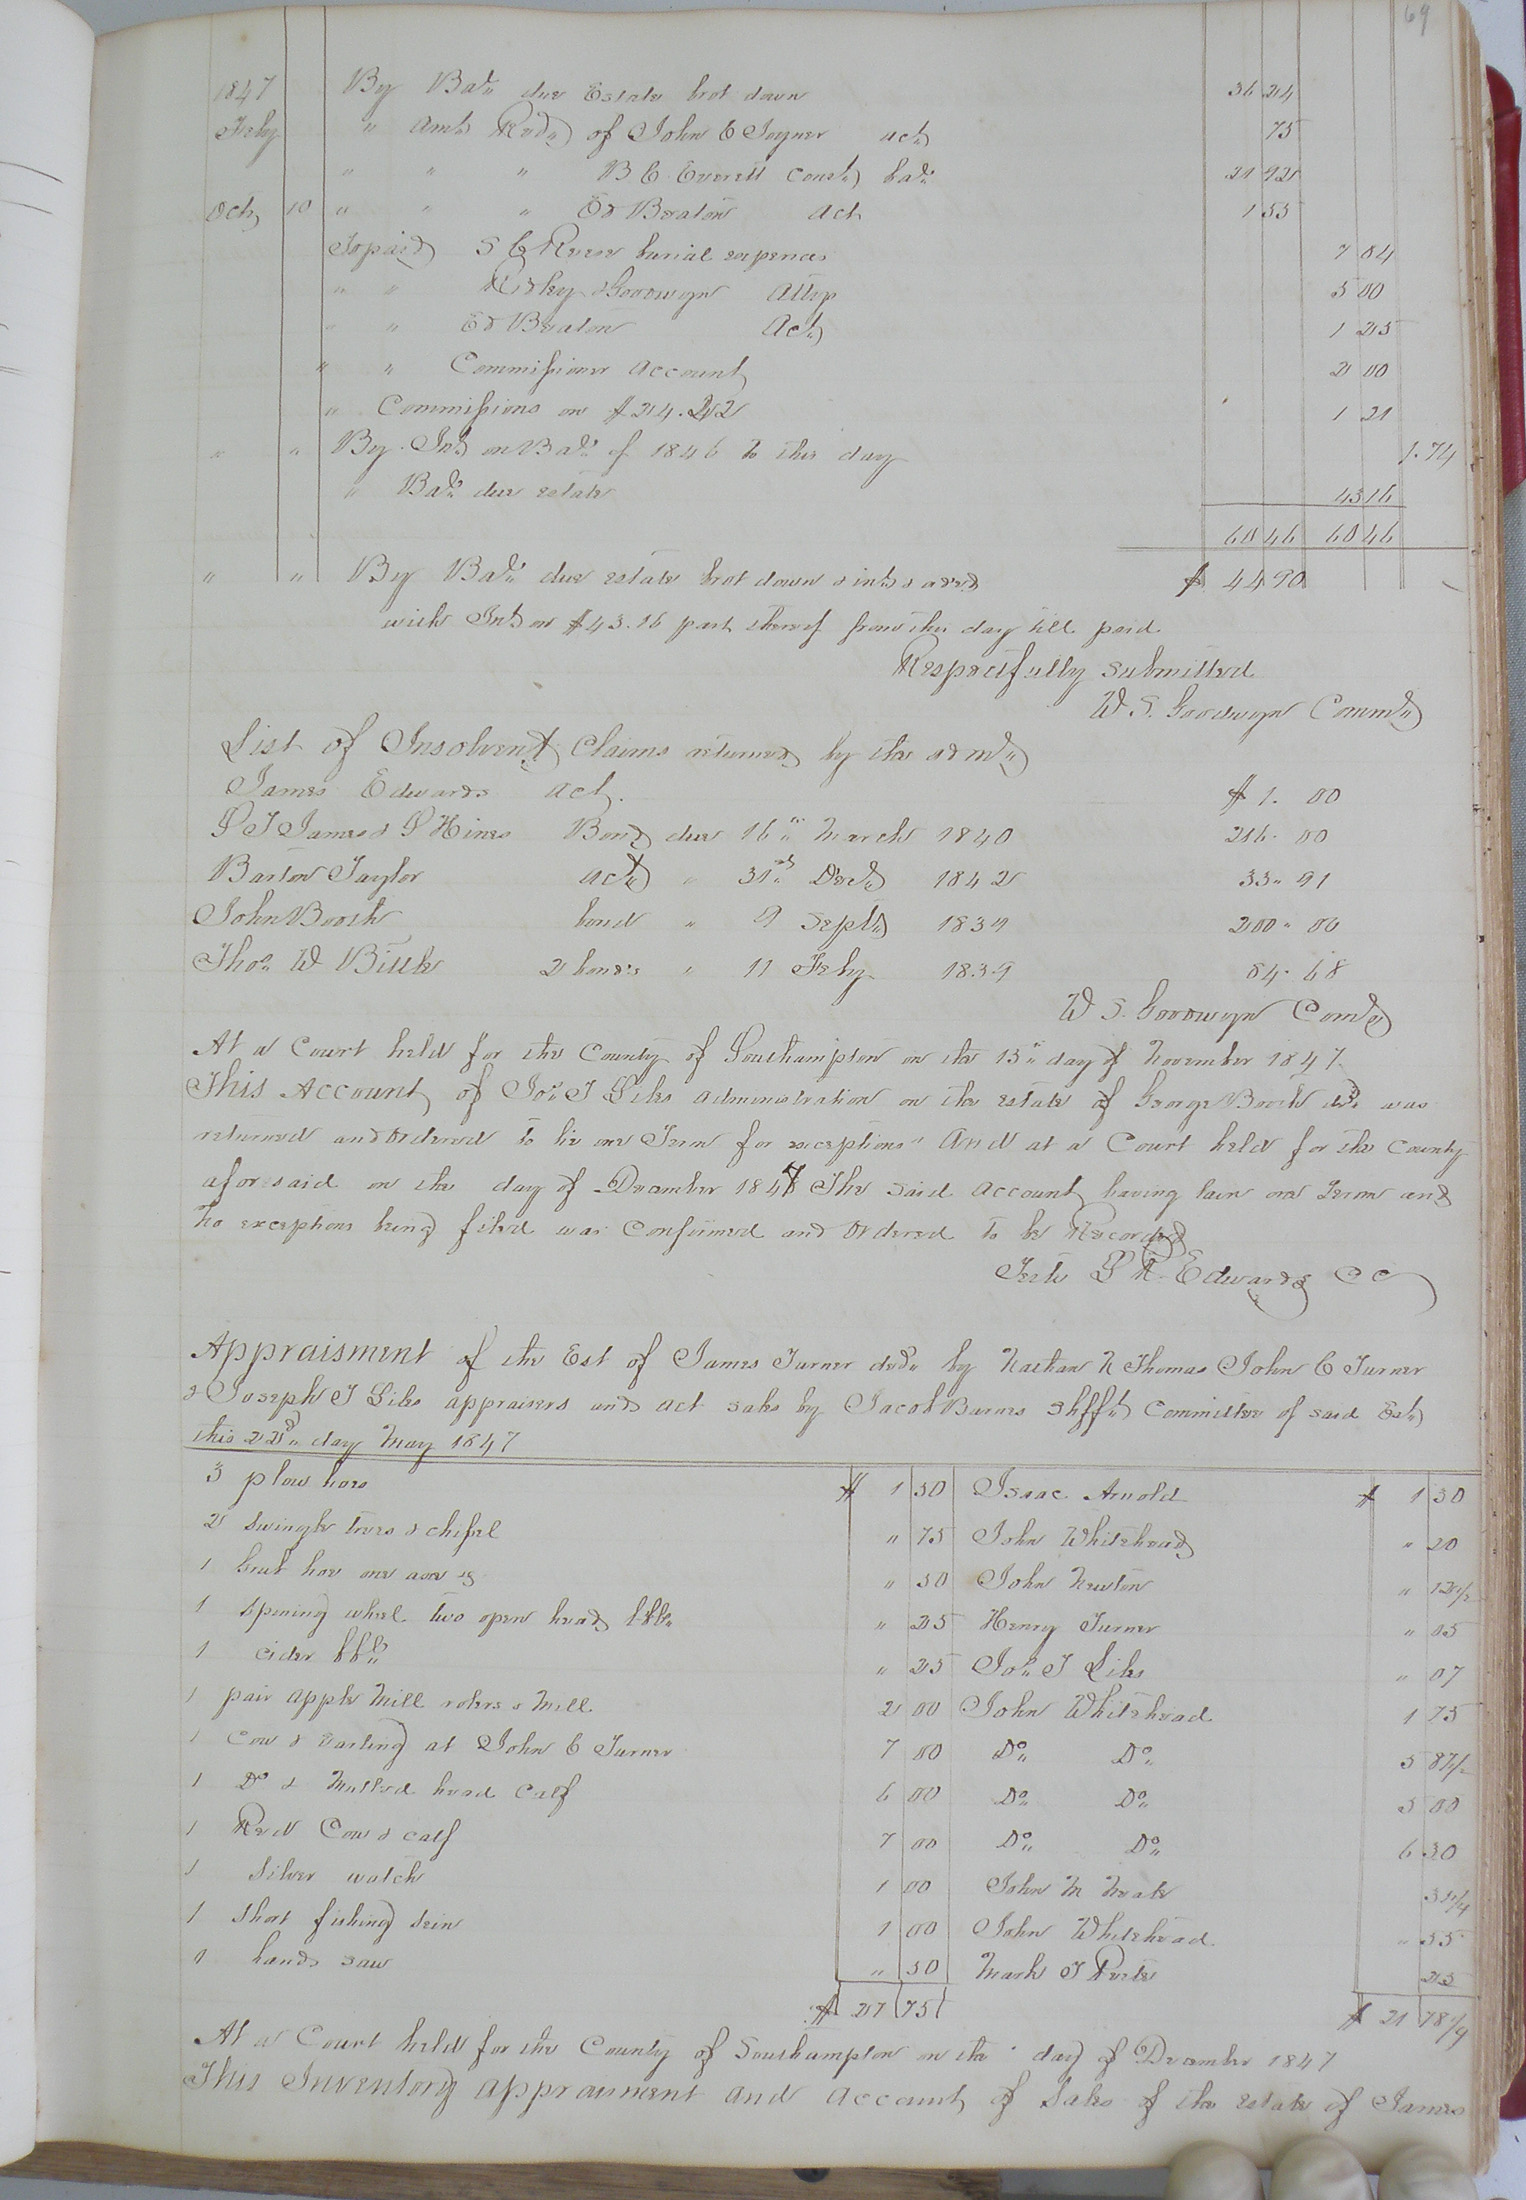 69
1847 By Bal. due Estate brot down 36 24
Feby " Amt Recd of John C Joyner act 75
" " " B C Everett Const bal. 21 92
Oct 10 " " " Ed Beaton act 1 55
To paid S C Reese burial expences 7 84
" " Ridley & Goodwyn Atty 5 00
" " Ed Beaton Act 1 25
" " Commissioner Account 2 00
" Commissions on $24.22 1 21
" " By Int on Bal. of 1846 to this day 1.74
" Bal. due estate 43 16
60 46 60 46
" " By Bal. due estate brot down & int. added $ 44 90
with Int on $43.16 part thereof from this day till paid
Respectfully submitted
W. S. Goodwyn Comm.
List of Insolvent Claims returned by the adm.
James Edwards act. $1.00
S J James & S Hines Bond due 16 March 1840 216.00
Barton Taylor act " 31st Decr 1842 33.91
John Booth bond " 9 Sept 1839 200.00
Thos. W Bittle 2 bonds " 11 Feby 1839 84.68
W S. Goodwyn Com.
At a Court held for the County of Southampton on the 15 day of November 1847.
This Account of Jos. J Liles administration on the estate of George Booth decd. was
returned and Ordered to lie one Term for exceptions" And at a Court held for the County
aforesaid on the day of December 1847 The said account having lain one Term and
no exceptions being filed was Confirmed and Ordered to be Recorded
Teste L R. Edwards CC
Appraisment of the Est of James Turner decd. by Nathan N Thomas John C Turner
& Joseph J Liles appraisers and act sales by Jacob Barnes Shff. Committee of said Est.
this 22d. day May 1847
3 plow hoes $ 1 50 Isaac Arnold $ 1 30
2 swingle trees & chissel " 75 John Whitehead " 20
1 grub hoe one axe " 50 John Newton " 12 1/2
1 spining wheel two open head bbls. " 25 Henry Turner " 05
1 cider bbl. " 25 Jos. J Liles " 07
1 pair apple Mill rolers & Mill 2 00 John Whitehead 1 75
1 Cow & earling at John C Turner 7 00 Do. Do. 5 87 1/2
1 Do & Mulled head Calf 6 00 Do. Do. 5 00
1 Red Cow & calf 7 00 Do. Do. 6 30
1 Silver watch 1 00 John M 31 1/4
1 Short fishing sein 1 00 John Whitehead " 55
1 hand saw " 50 Mark J 25
$ 27 75 $ 21 78 1/4
At a Court held for the County of Southampton on the day of December 1847
This Inventory appraisment and account of Sales of the estate of James